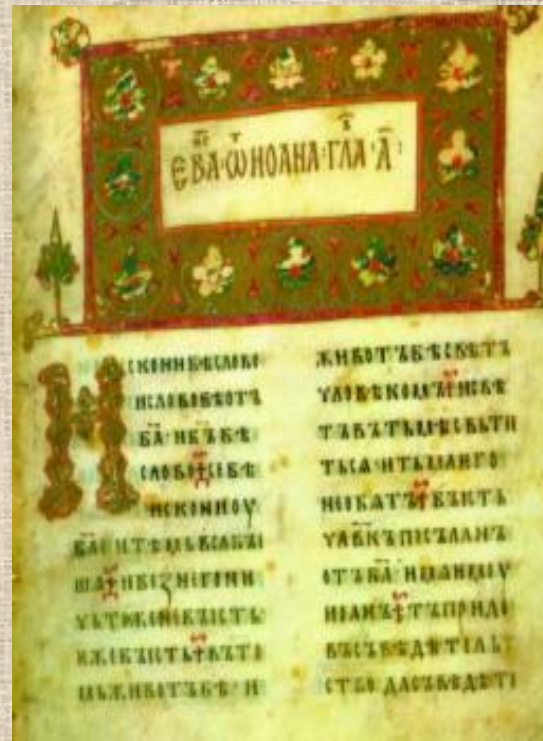 ЕВА · Ѡ ИОАНА · ГЛА · А҃ ·
ИСКОНИБѢСЛОВО
ИСЛОВОБѢОТЪ
Б҃А · ИБ҃ЪБѢ
СЛОВО СЕБѢ
ИСКОНИОУ
Б҃А · ИТѢМЬВЬСАБЫ
ША ИБЕЖНЕГОНИ
ЧЬТОЖЕНЕБЫСТЬ
ѤЖЕБЫСТЬ ВЪТО
МЬЖИВОТЪБѢ · И
ЖИВОТЪБѢСВѢТЪ
ЧЛОВѢКОМЪ ИСВѢ
ТЪВЪТЬМѢСВЬТИ
ТЬСѦ · ИТЬМАѤГО
НЕОБѦТЪ БЫСТЬ
ЧЛ҃ВКЪПОСЪЛАНЪ
ОТЪБ҃А · ИМѦѤМОУ
ИОАНЪ ТЪПРИДЕ
ВЪСЪВѢДѢТЕЛЬ
СТВО · ДАСЪВѢДѢТЕ